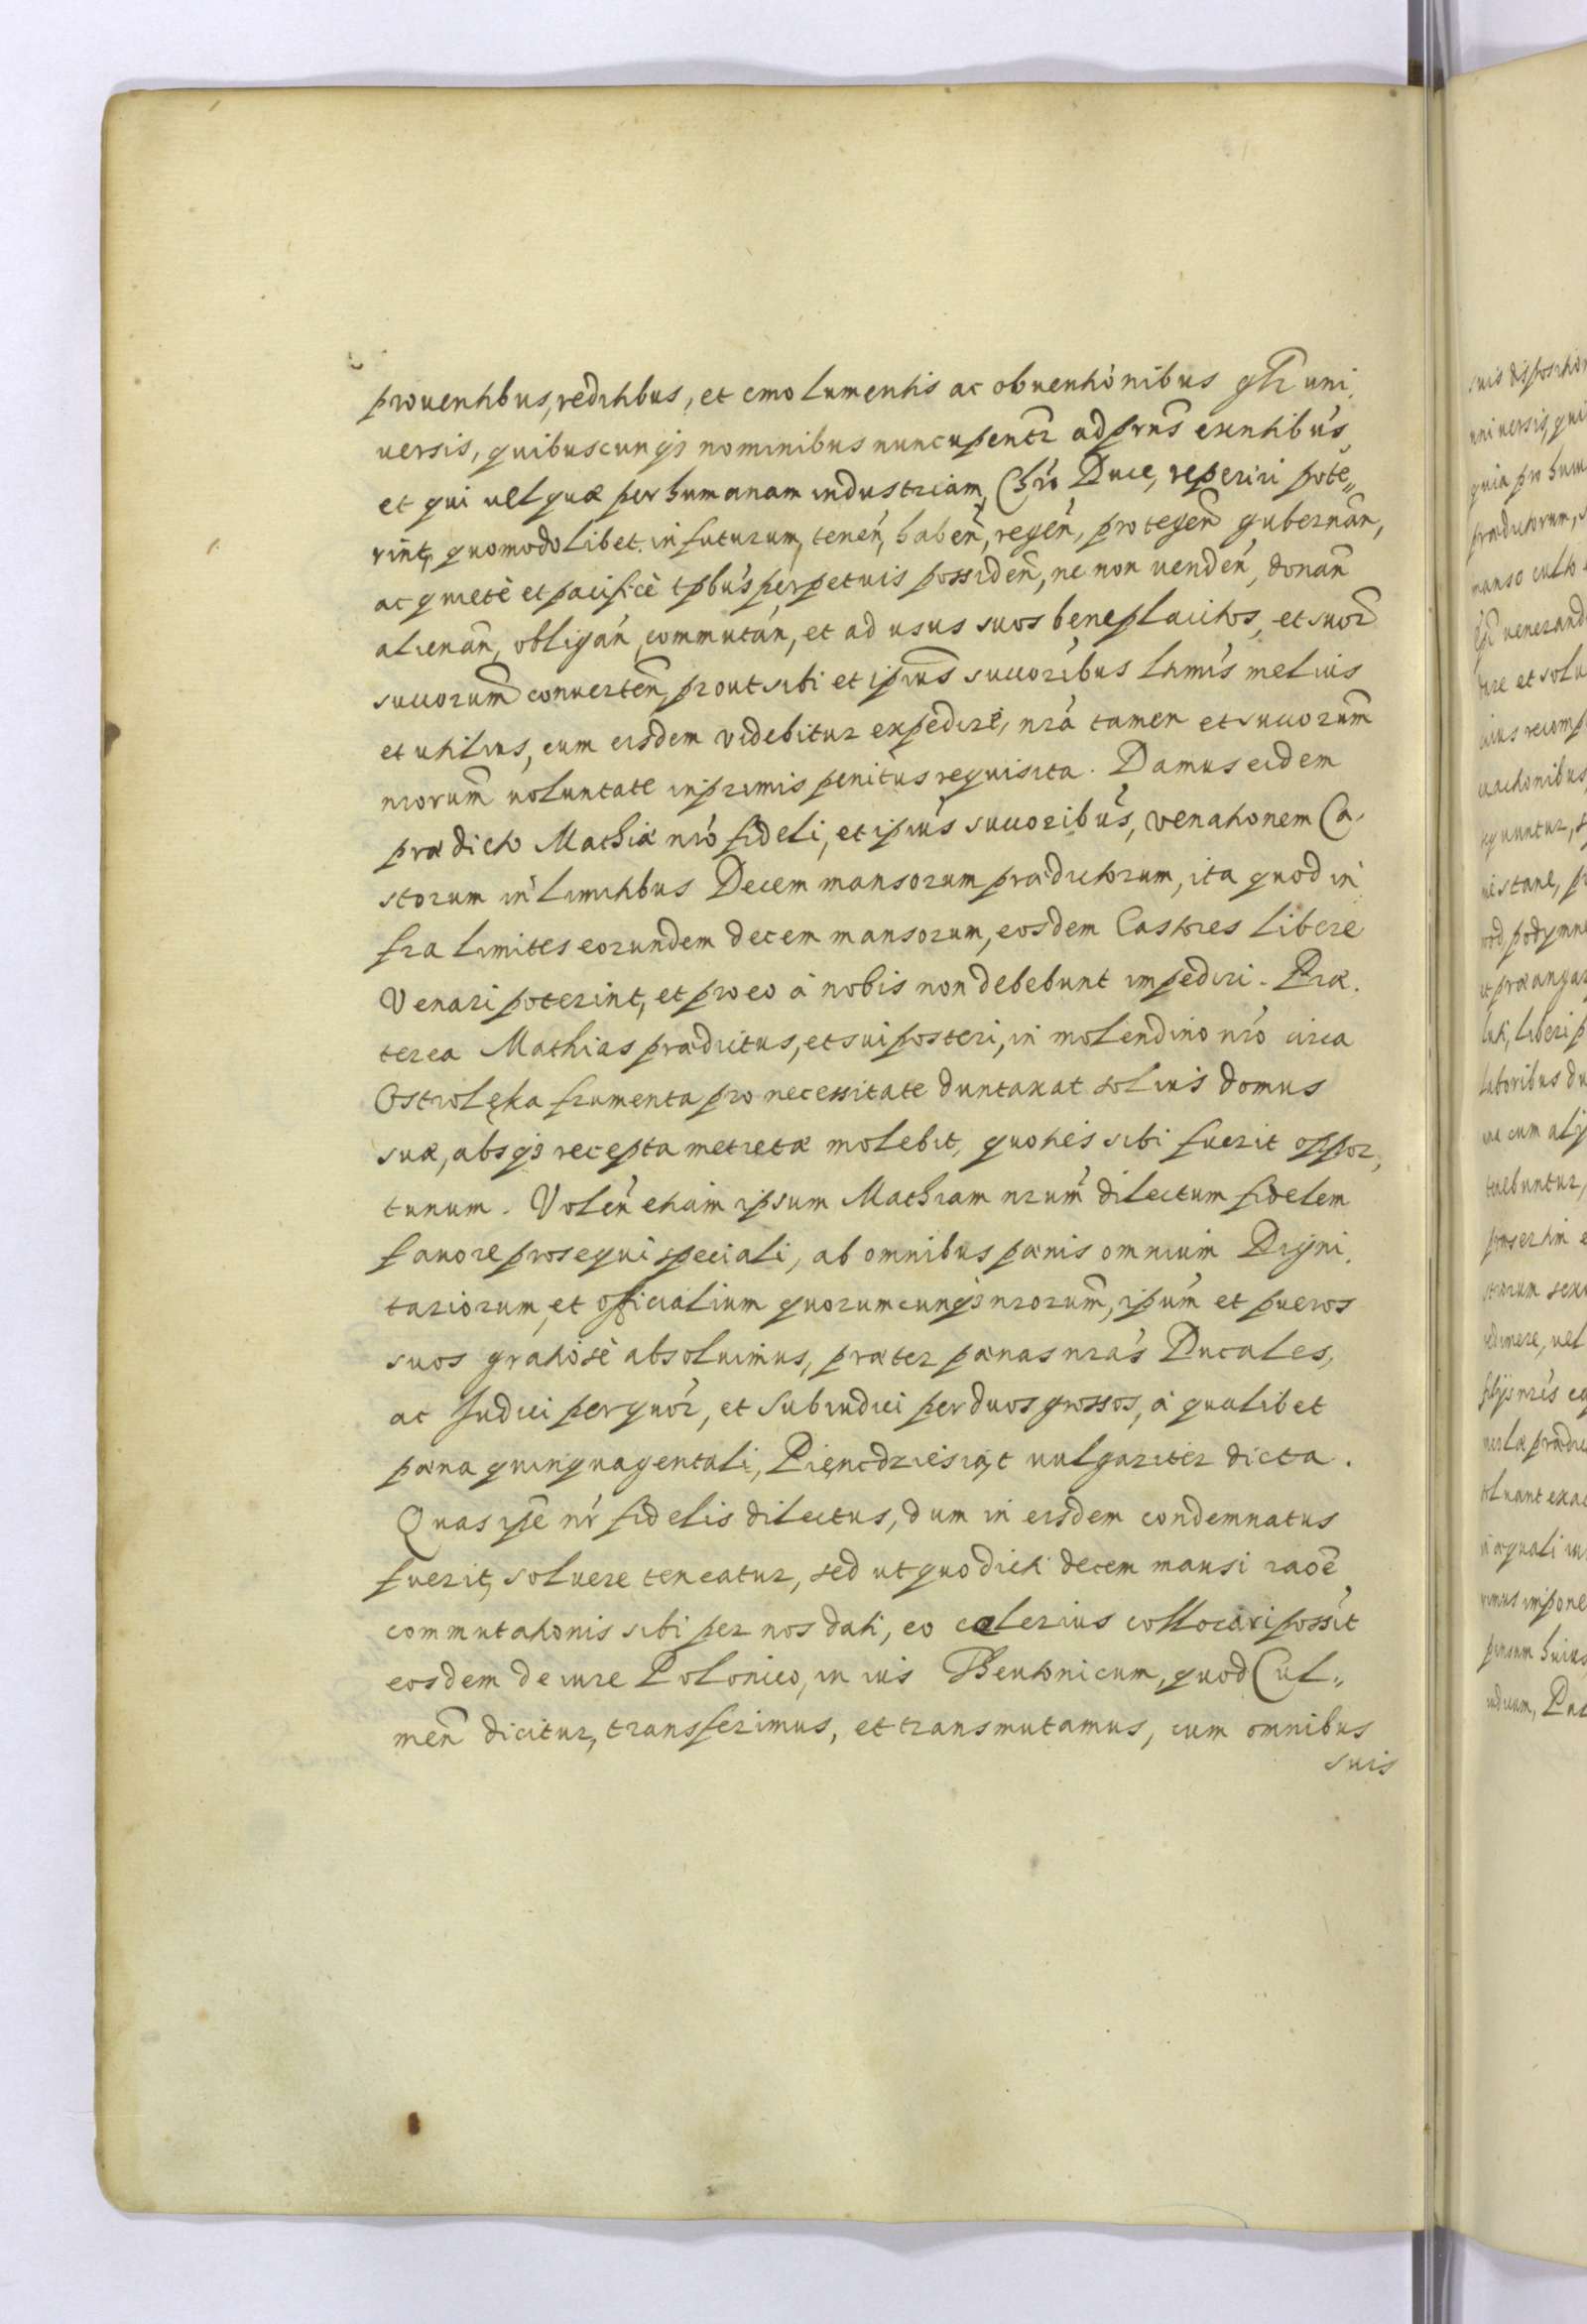 prouentibus, reditibus, et emolumentis ac obuentionibus gñlr uni,
uersis, quibuscunq3 nominibus nuncupentr ad prns exntibus,
et qui uel quæ per humanam industriam, Chro Duce, reperiri pote„
rint, quomodolibet in futurum, tenen, haben, regen, protegen gubernan,
ac quietè et pacificè tpbus perpetuis possiden, nenon uenden, donan
alienan, obligan, commutan, et ad usus suos beneplacitos, et suor
succorum conuerten, prout sibi et ipius succoribus ltimis melius
et utilius, cum eisdem videbitur expedire, nra tamen et succorum
nrorum uoluntate inprimis penitus requisita. Damus eidem
prædicto Mathiæ nro fideli, et ipius succoribus, venationem Ca,
storum in limitibus Decem mansorum prædictorum, ita quod in
fra limites eorundem decem mansorum, eosdem Castores libere
Venari poterint, et pro eo à nobis non debebunt impediri. Præ,
terea Mathias prædictus, et sui posteri, in molendino nro circa
Ostrolęka frumenta pro necessitate duntaxat solius domus
suæ, absq3 recepta metretæ molebit, quoties sibi fuerit oppor,
tunum. Volen etiam ipsum Mathiam nrum dilectum fidelem
fauore prosequi speciali, ab omnibus pœnis omnium Digni,
tariorum, et officialium quorumcunq3 nrorum, ipum et pueros
suos gratiosè absoluimus, præter pœnas nras Ducales,
ac Judici per quor, et Subiudici per duos grossos, à qualibet
pœna quinquagentali, Pięncdziesiąt uulgariter dicta.
Quas ipe nr fidelis dilectus, dum in eisdem condemnatus
fuerit, soluere teneatur, sed ut quo dicti decem mansi raoe
commutationis sibi per nos dati, eo celerius collocari possit
eosdem de iure Polonico, in ius Theutonicum, quod Cul„
men dicitur, transferimus, et transmutamus, cum omnibus
suis